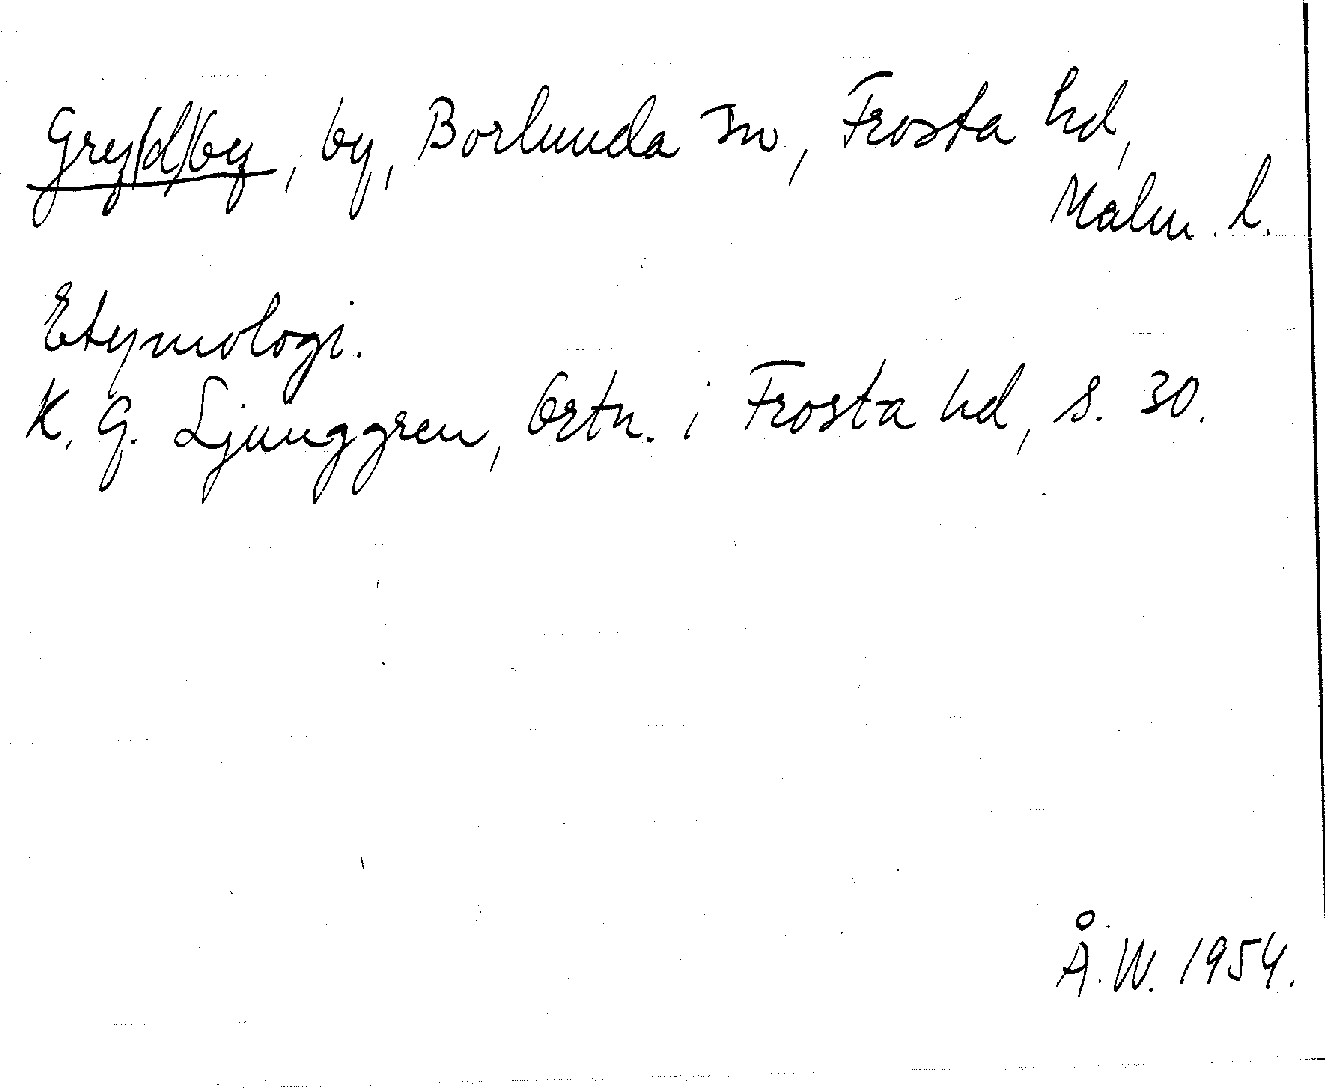 Gry/d/by, by, Borlunda sn, Frosta hd,
Malm. l.
Etymologi.
K. G. Ljunggren, Ortn. i Frosta hd, s. 30.
Å. W. 1954.